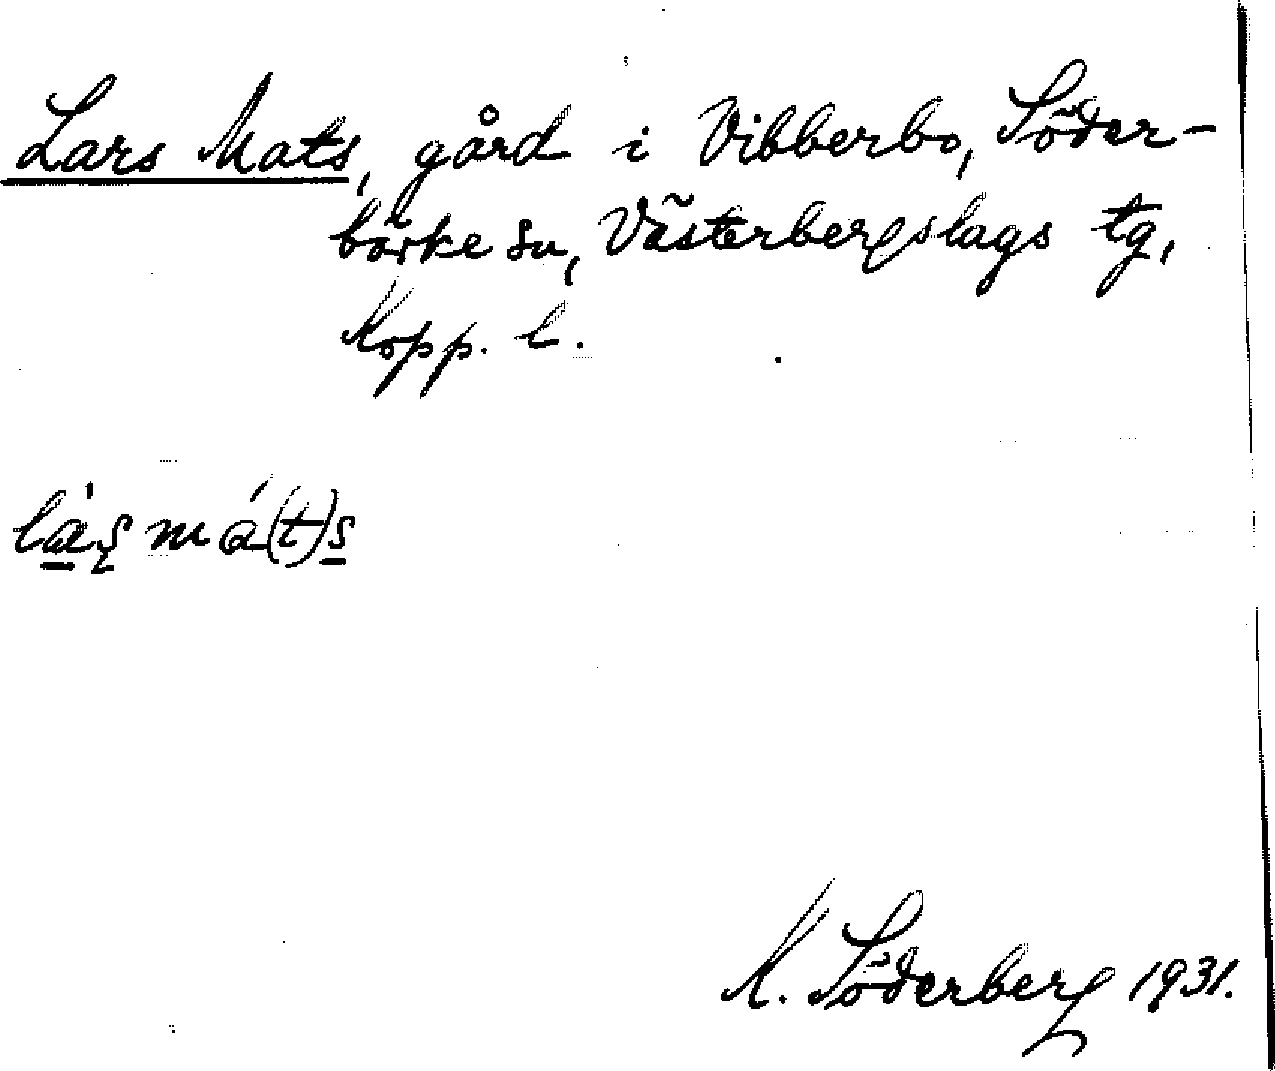 Lars Mats, gård i Vibberbo, Söder-
bärke sn, Västerbergslags tg,
Kopp. l.
là̱ʂ má(t)s̱
K. Söderberg 1931.